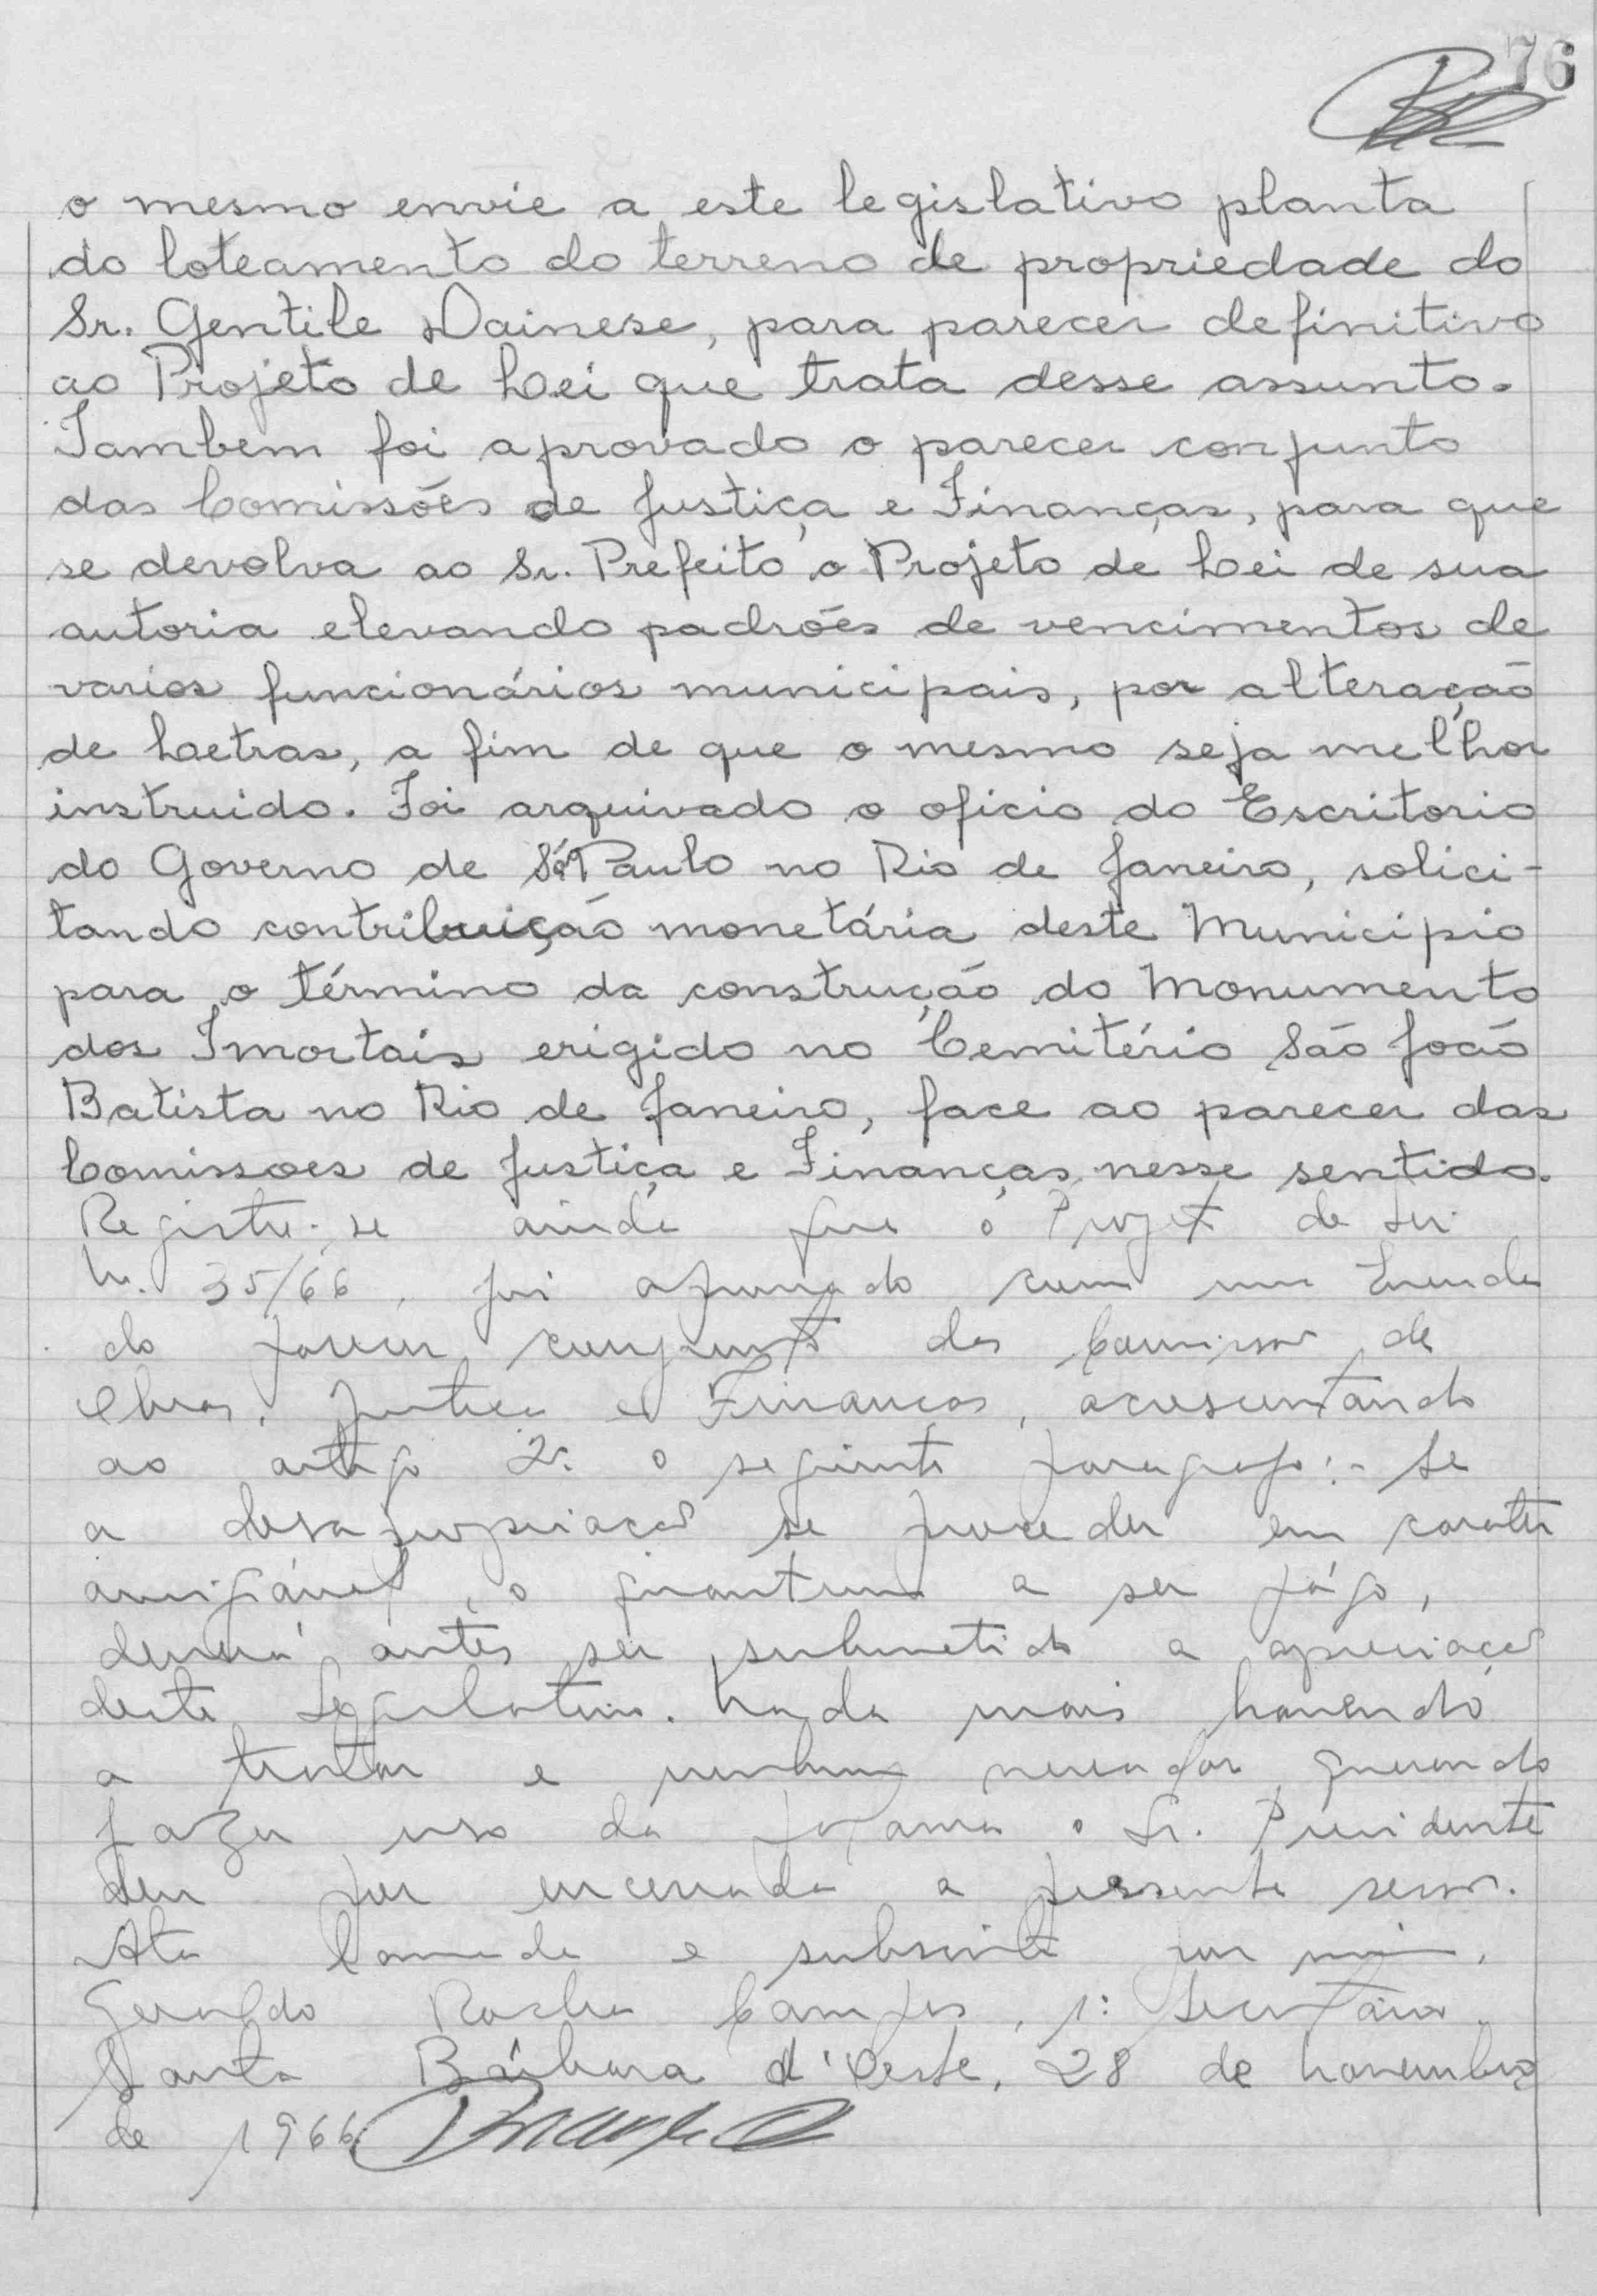 76
o mesmo envie a este legislativo planta
do loteamento do terreno de propriedade do
Sr. Gentile Dainese, para parecer definitivo
ao Projeto de Lei que trata desse assunto.
Tambem foi aprovado o parecer conjunto
das Comissões de Justiça e Finanças, para que
se devolva ao Sr. Prefeito o Projeto de Lei de sua
autoria elevando padrões de vencimentos de
varios funcionários municipais, por alteração
de Letras, a fim de que o mesmo seja melhor
instruido. Foi arquivado o oficio do Escritorio
do Governo de São Paulo no Rio de Janeiro, solici-
tando contribuição monetária deste Municipio
para o término da construção do Monumento
dos Imortais erigido no Cemitério São João
Batista no Rio de Janeiro, face ao parecer das
Comissoes de Justiça e Finanças nesse sentido.
Registre-se ainda que o Projeto de Lei
N. 35/66, foi aprovado com uma Emenda
do parecer conjunto das Comissões de
Obras, Justiça e Finanças, acrescentando
ao artigo 2º o seguinte paragrafo:- Se
a desapropriação se proceder em carater
amigável, o quantum a ser págo,
deverá antes ser submetido a apreciação
deste Legislativo. Nada mais havendo
a tratar e nenhum vereador querendo
fazer uso da palavra o Sr. Presidente
deu por encerrada a presente sessão.
Ata lavrada e subscrita por mim,
Geraldo Rocha Campos, 1º Secretário.
Santa Bárbara d'Oeste, 28 de novembro
de 1966